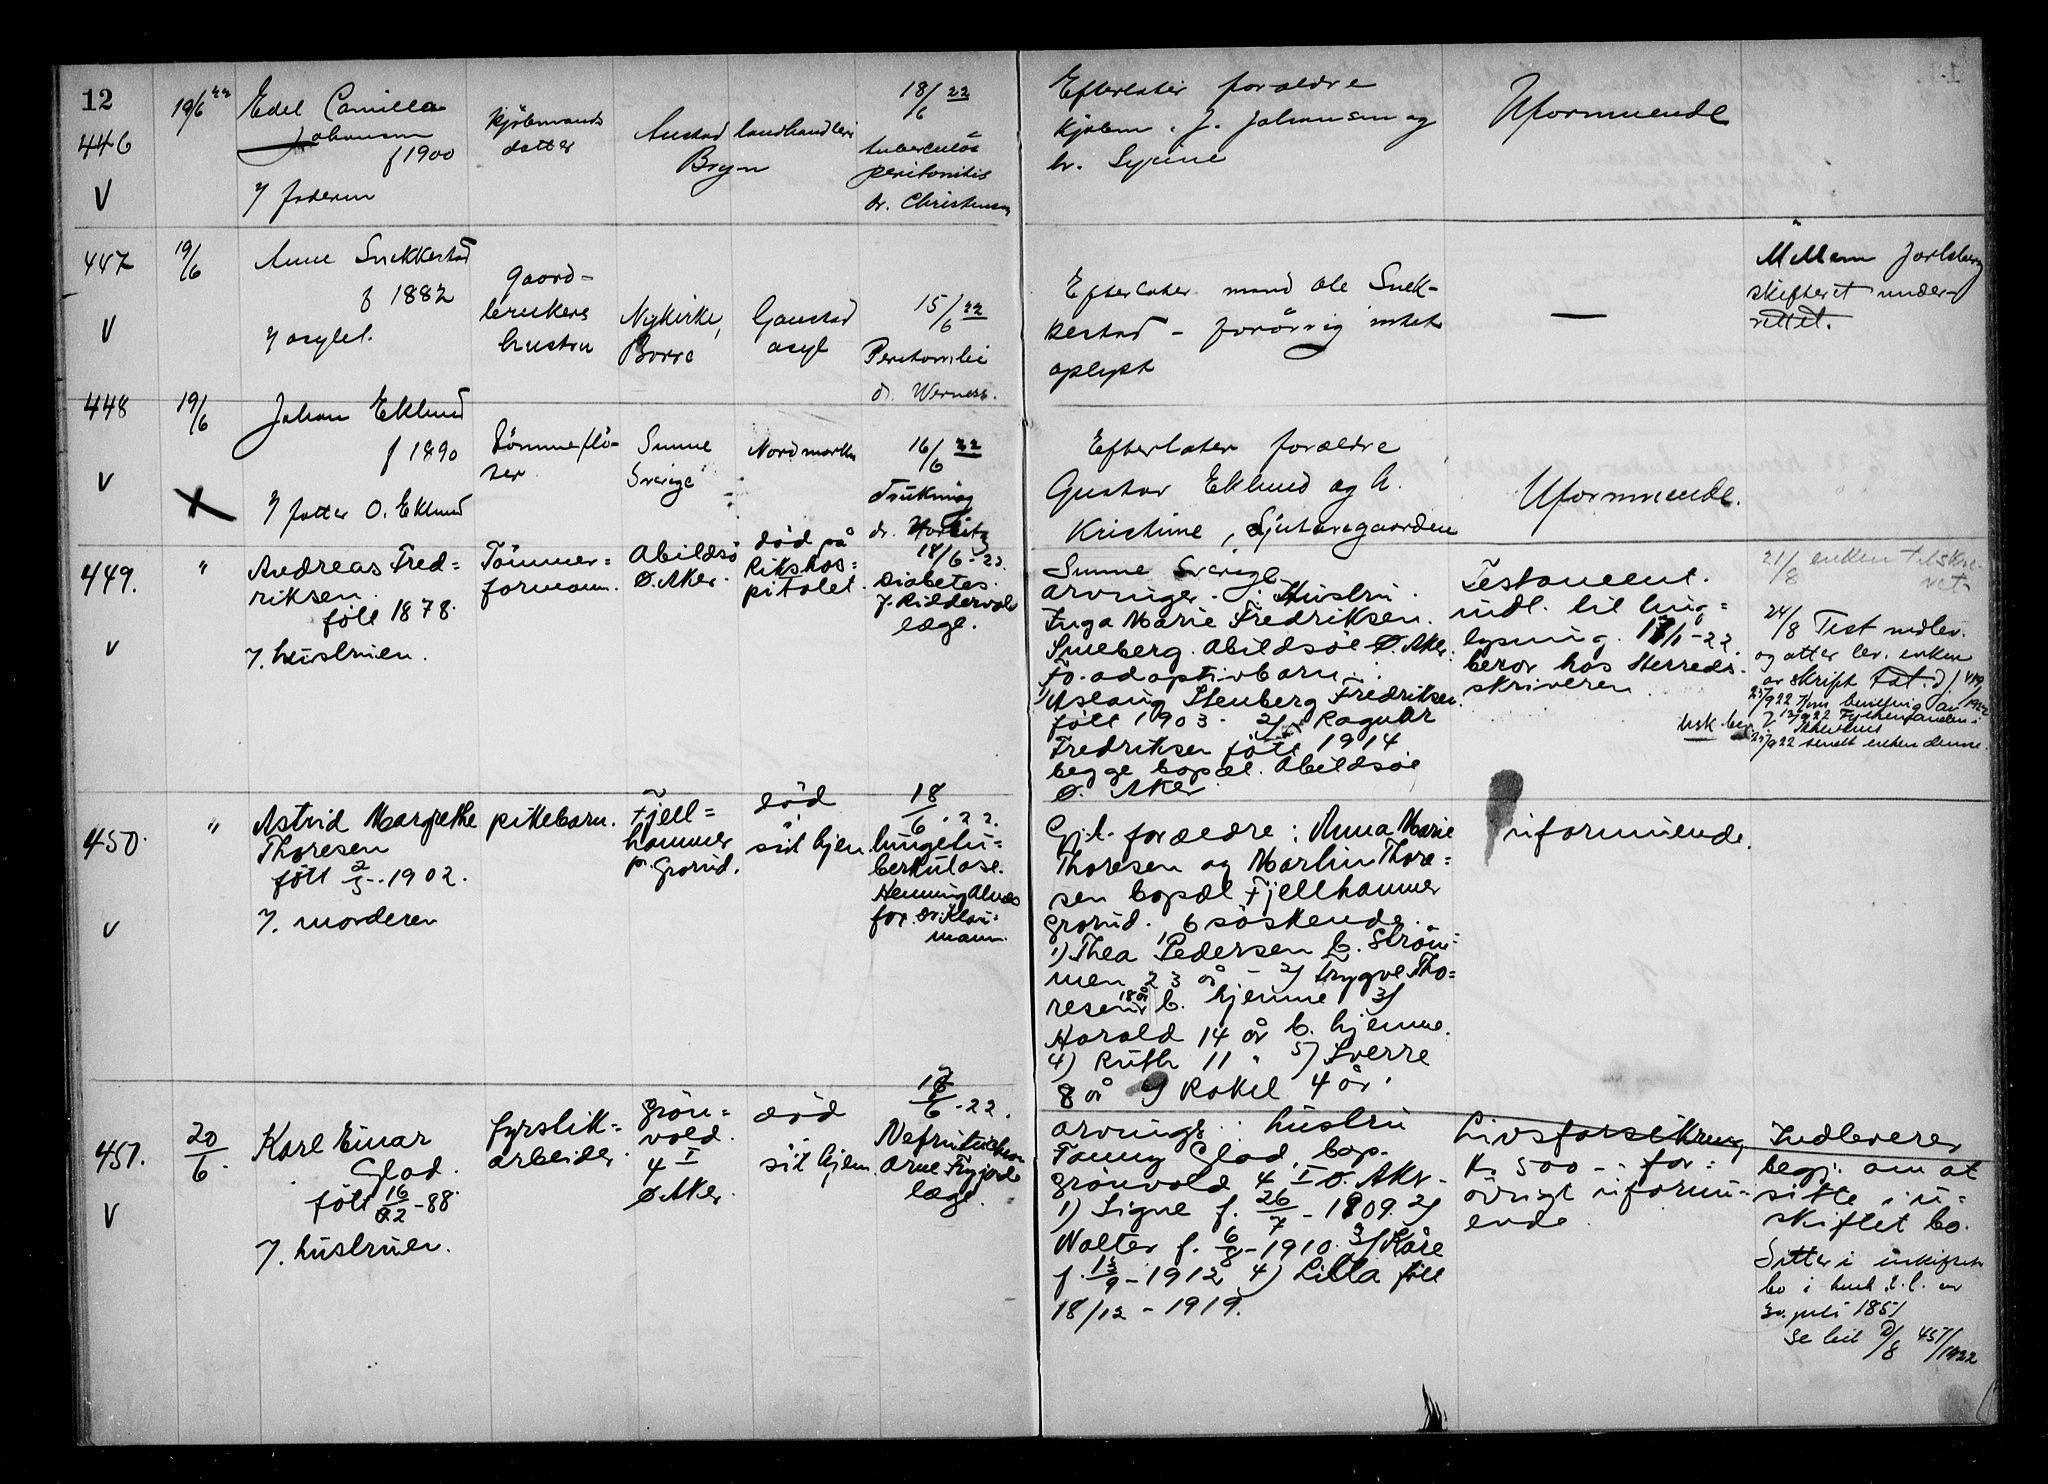 12
446
V
19/6 22
Edel Camilla
Johansen
f 1900
/ faderen
Kjöbmands
datter
Anstad landhandleri
Bryn
18/6 22
tuberculös
peritonitis
dr. Christensen
Efterlater forældre
Kjøbm. J. Johansen og
h. Syrine
Uformuende
447
V
19/6
Anne Snekkestad
f 1882
/ asylet.
Gaard-
brukers
hustru
Nykirke,
Borre
Gaustad
asyl
15/6 22
dr. Werness.
Efterlater mand Ole Snek-
kestad - forövrig intet
oplyst
—
Jarlsberg
skifteret under-
rettet.
448
V
X
19/6
Johan Eklund
f 1890
/ fatter O. Eklund
Tömmerflö-
ter
Sunne
Sverige
Nordmarken
16/6 22
Drukning
Efterlater forældre
Gustav Eklund og h.
Kristine, Sjutaregaarden
Sunne Sverige
Uformuende.
449.
V
"
Andreas Fred=
riksen.
født 1878.
/. hustruen.
Tömmer=
formann.
Abildsö
Ø. Aker.
död på
Rikshos=
pitalet.
18/6-22.
Diabetes.
læge.
arvinger: Hustru
Inga Marie Fredriksen.
Smeberg. Abildsöe Ø. Aker.
To. adoptivbarn:
1/ Aslaug Stenberg Fredriksen
född 1903. 2/ Ragnar
Fredriksen född 1914
begge bopæl. Abildsöe
Ø. Aker.
Testament.
indl. til ting=
lysning. 17/1-22.
beror hos Herreds-
skriveren.
21/8 enken tilskre-
vet
24/8 Test indlev.
og atter lev. enken
av skrift
25/9 22 sendt enken denne.
450.
V
"
Astrid Margrethe
Thoresen
født 2/5-1902.
/. morderen
pikebarn.
Fjell=
hammer
p. Grorud.
död
i
sit hjem
18/6.22.
lungetu=
berkulose.
Henning Alnæs
for. dr. Klau=
mann.
Gj.l. forældre: Anna Marie
Thoresen og Martin Thore=
sen bopæl Fjellhammer
Grorud. 6 söskende.
1) Thea Pedersen b. Ström=
men 23 år - 2/ Trygve Tho=
resen 18 år b. hjemme 3/
Harald 14 år b. hjemme.
4) Ruth 11 " 5) Sverre
8 år 6/ Rakel 4 år.
uformuende.
451.
V
20/6.
Karl Einar
Glad.
født 16/02-88.
/. hustruen.
fyrstik=
arbeider.
Grön=
vold.
4 I
Ø. Aker.
död
i
sit hjem.
18/6-22.
læge.
arvinge: hustru
Fanny Glad, bop.
Grönvold 4 I Ø. Aker-
1) Signe f. 26/7-1909. 2/
Walter f. 6/8-1910. 3/ Kåre
f. 13/9-1912 4) Lilla född
18/12-1919.
Livsforsikring
Kr 500 - for=
övrigt uformu=
ende.
Indleverer
begj. om at
sitte i u=
skiftet bo.
Sitter i uskiftet
bo i henh. t. l. av
30. juli 1851
Se bil 2/8 451/1922